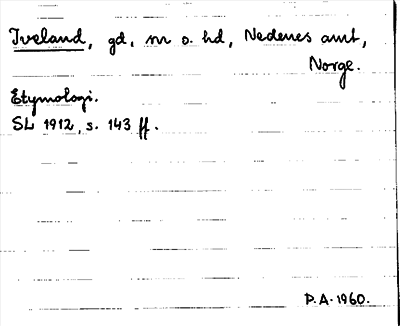 Iveland, gd, sn o. hd, Nedenes amt,
Norge.
Etymologi.
SL 1912, s. 143 ff.
P.A. 1960.